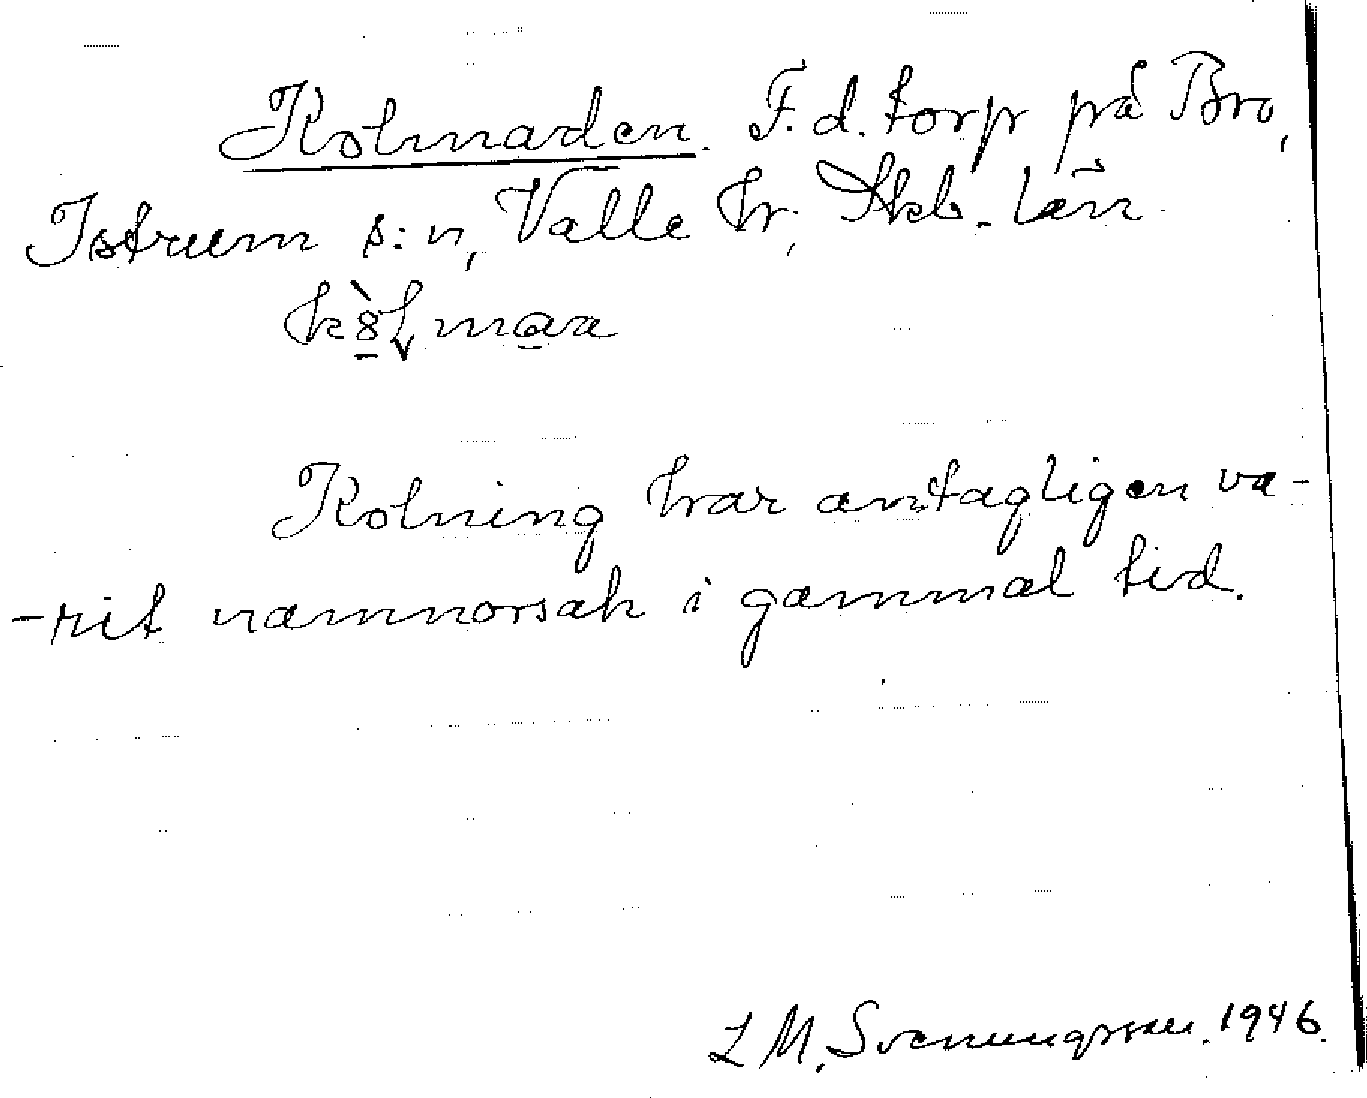 Kolmaden. F.d. torp på Bro,
Istrum s:n, Valle hr, Skb. län
Kolning har antagligen va-
-rit namnorsak i gammal tid.
L M. Svenungsson. 1946.